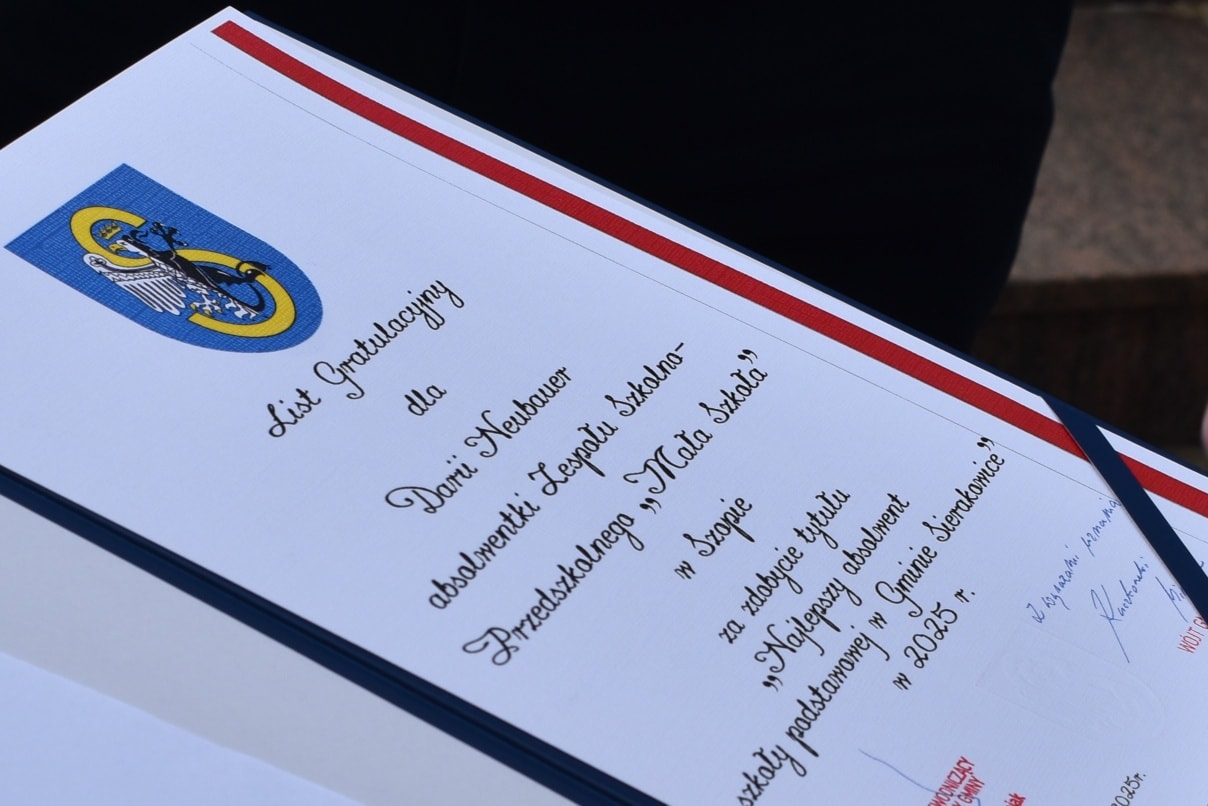 List Gratulacyjny
dla
Darii Neubauer
absolwentki Zespołu Szkolno-
Przedszkolnego „Mała Szkoła”
w Szopie
za zdobycie tytułu
„Najlepszy absolwent
szkoły podstawowej w Gminie Sierakowice”
w 2025 r.
Z wyrazami uznania
WÓJT G
WODNICZĄCY
GMINY
2025r.